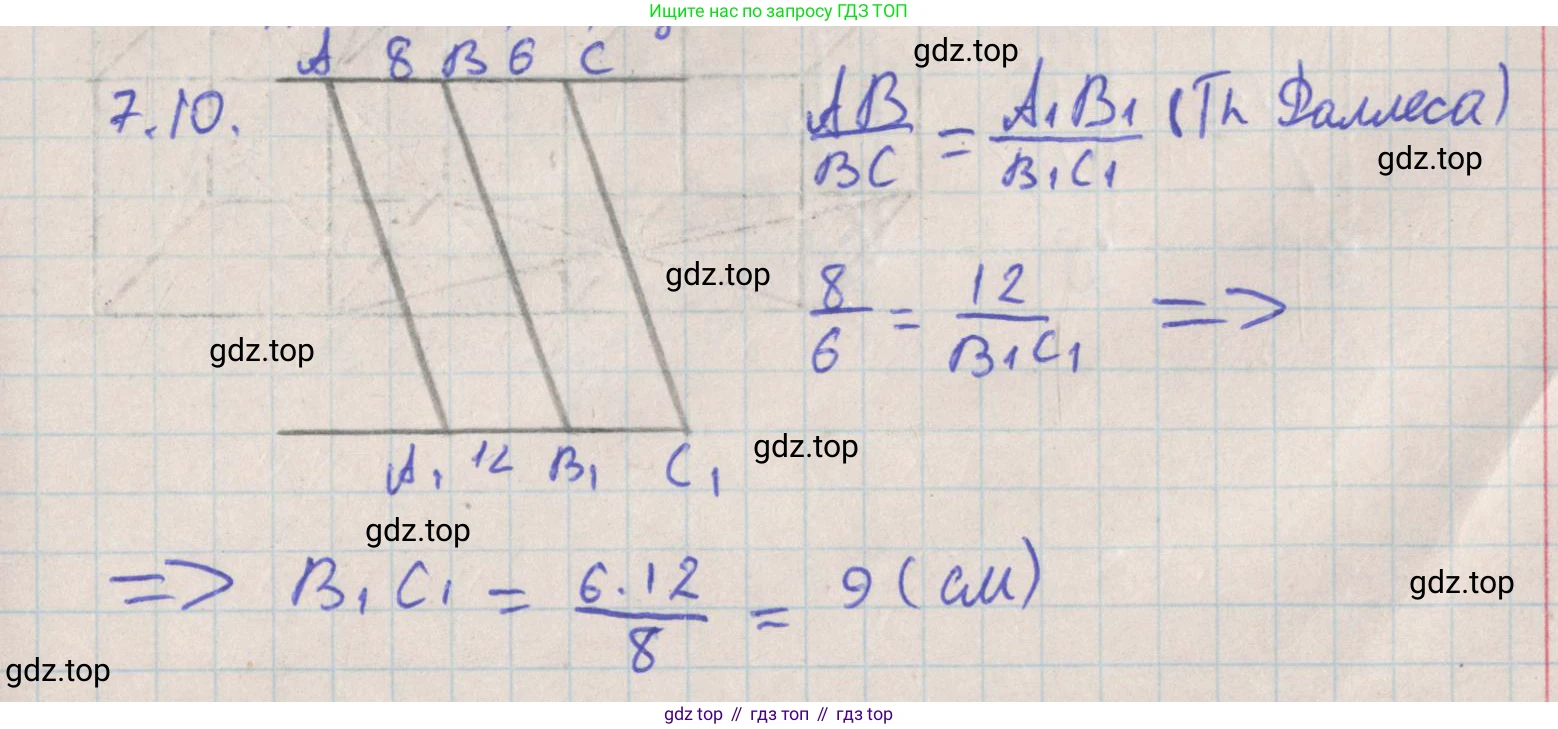 Ищите нас по запросу ГДЗ ТОП
A 8 B 6 C
gdz.top
7.10.
AB/BC = A₁B₁/B₁C₁ (Th Фаллеса)
gdz.top
gdz.top
8/6 = 12/B₁C₁ =>
gdz.top
gdz.top
A₁ 12 B₁ C₁
gdz.top
=> B₁C₁ = 6·12/8 = 9 (см)
gdz.top
gdz.top
gdz top // гдз топ // гдз top